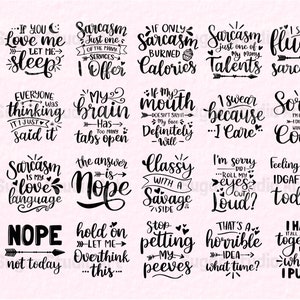 IF YOU
love me
LET ME
Sleep?
Sarcasm
JUST ONE
OF THE MANY
SERVICES
I Offer
IF ONLY
Sarcasm
BURNED
Calories
Sarcasm
just one of
my many
Talents
EVERYONE
WAS
thinking
I JUST
said it
My
brain
Has
TOO MANY
tabs open
If My
mouth
DOESN'T SAY IT
My Face
Definitely
Will
I swear
because
I Care
Sarcasm
IS MY
love
language
the answer
is
Nope
Classy
WITH A
Savage
SIDE
I'm sorry
DID I
ROLL MY
eyes
OUT
Loud?
Feeling
IDGAF
today
NOPE
not today
hold on
LET ME
Overthink
this
Stop
petting
My
peeves
THAT'S A
horrible
IDEA
what time?
I HA
toge